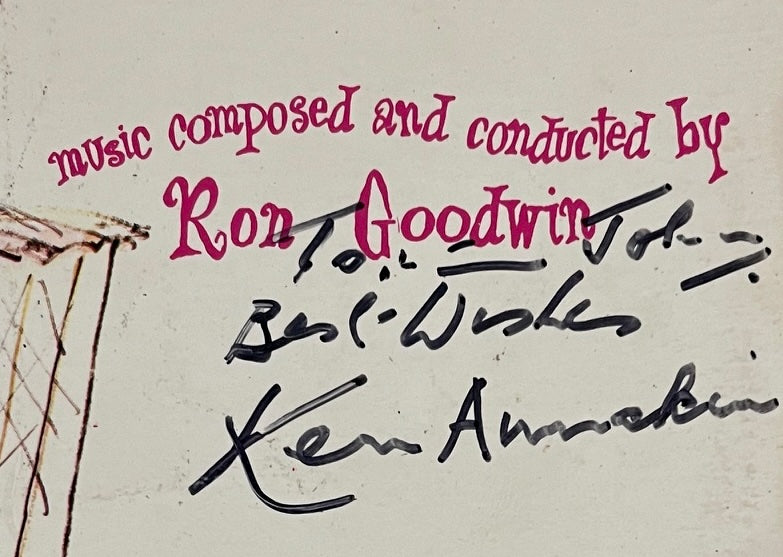 music composed and conducted by
Ron Goodwin
To John
Best Wishes
Ken Annakin